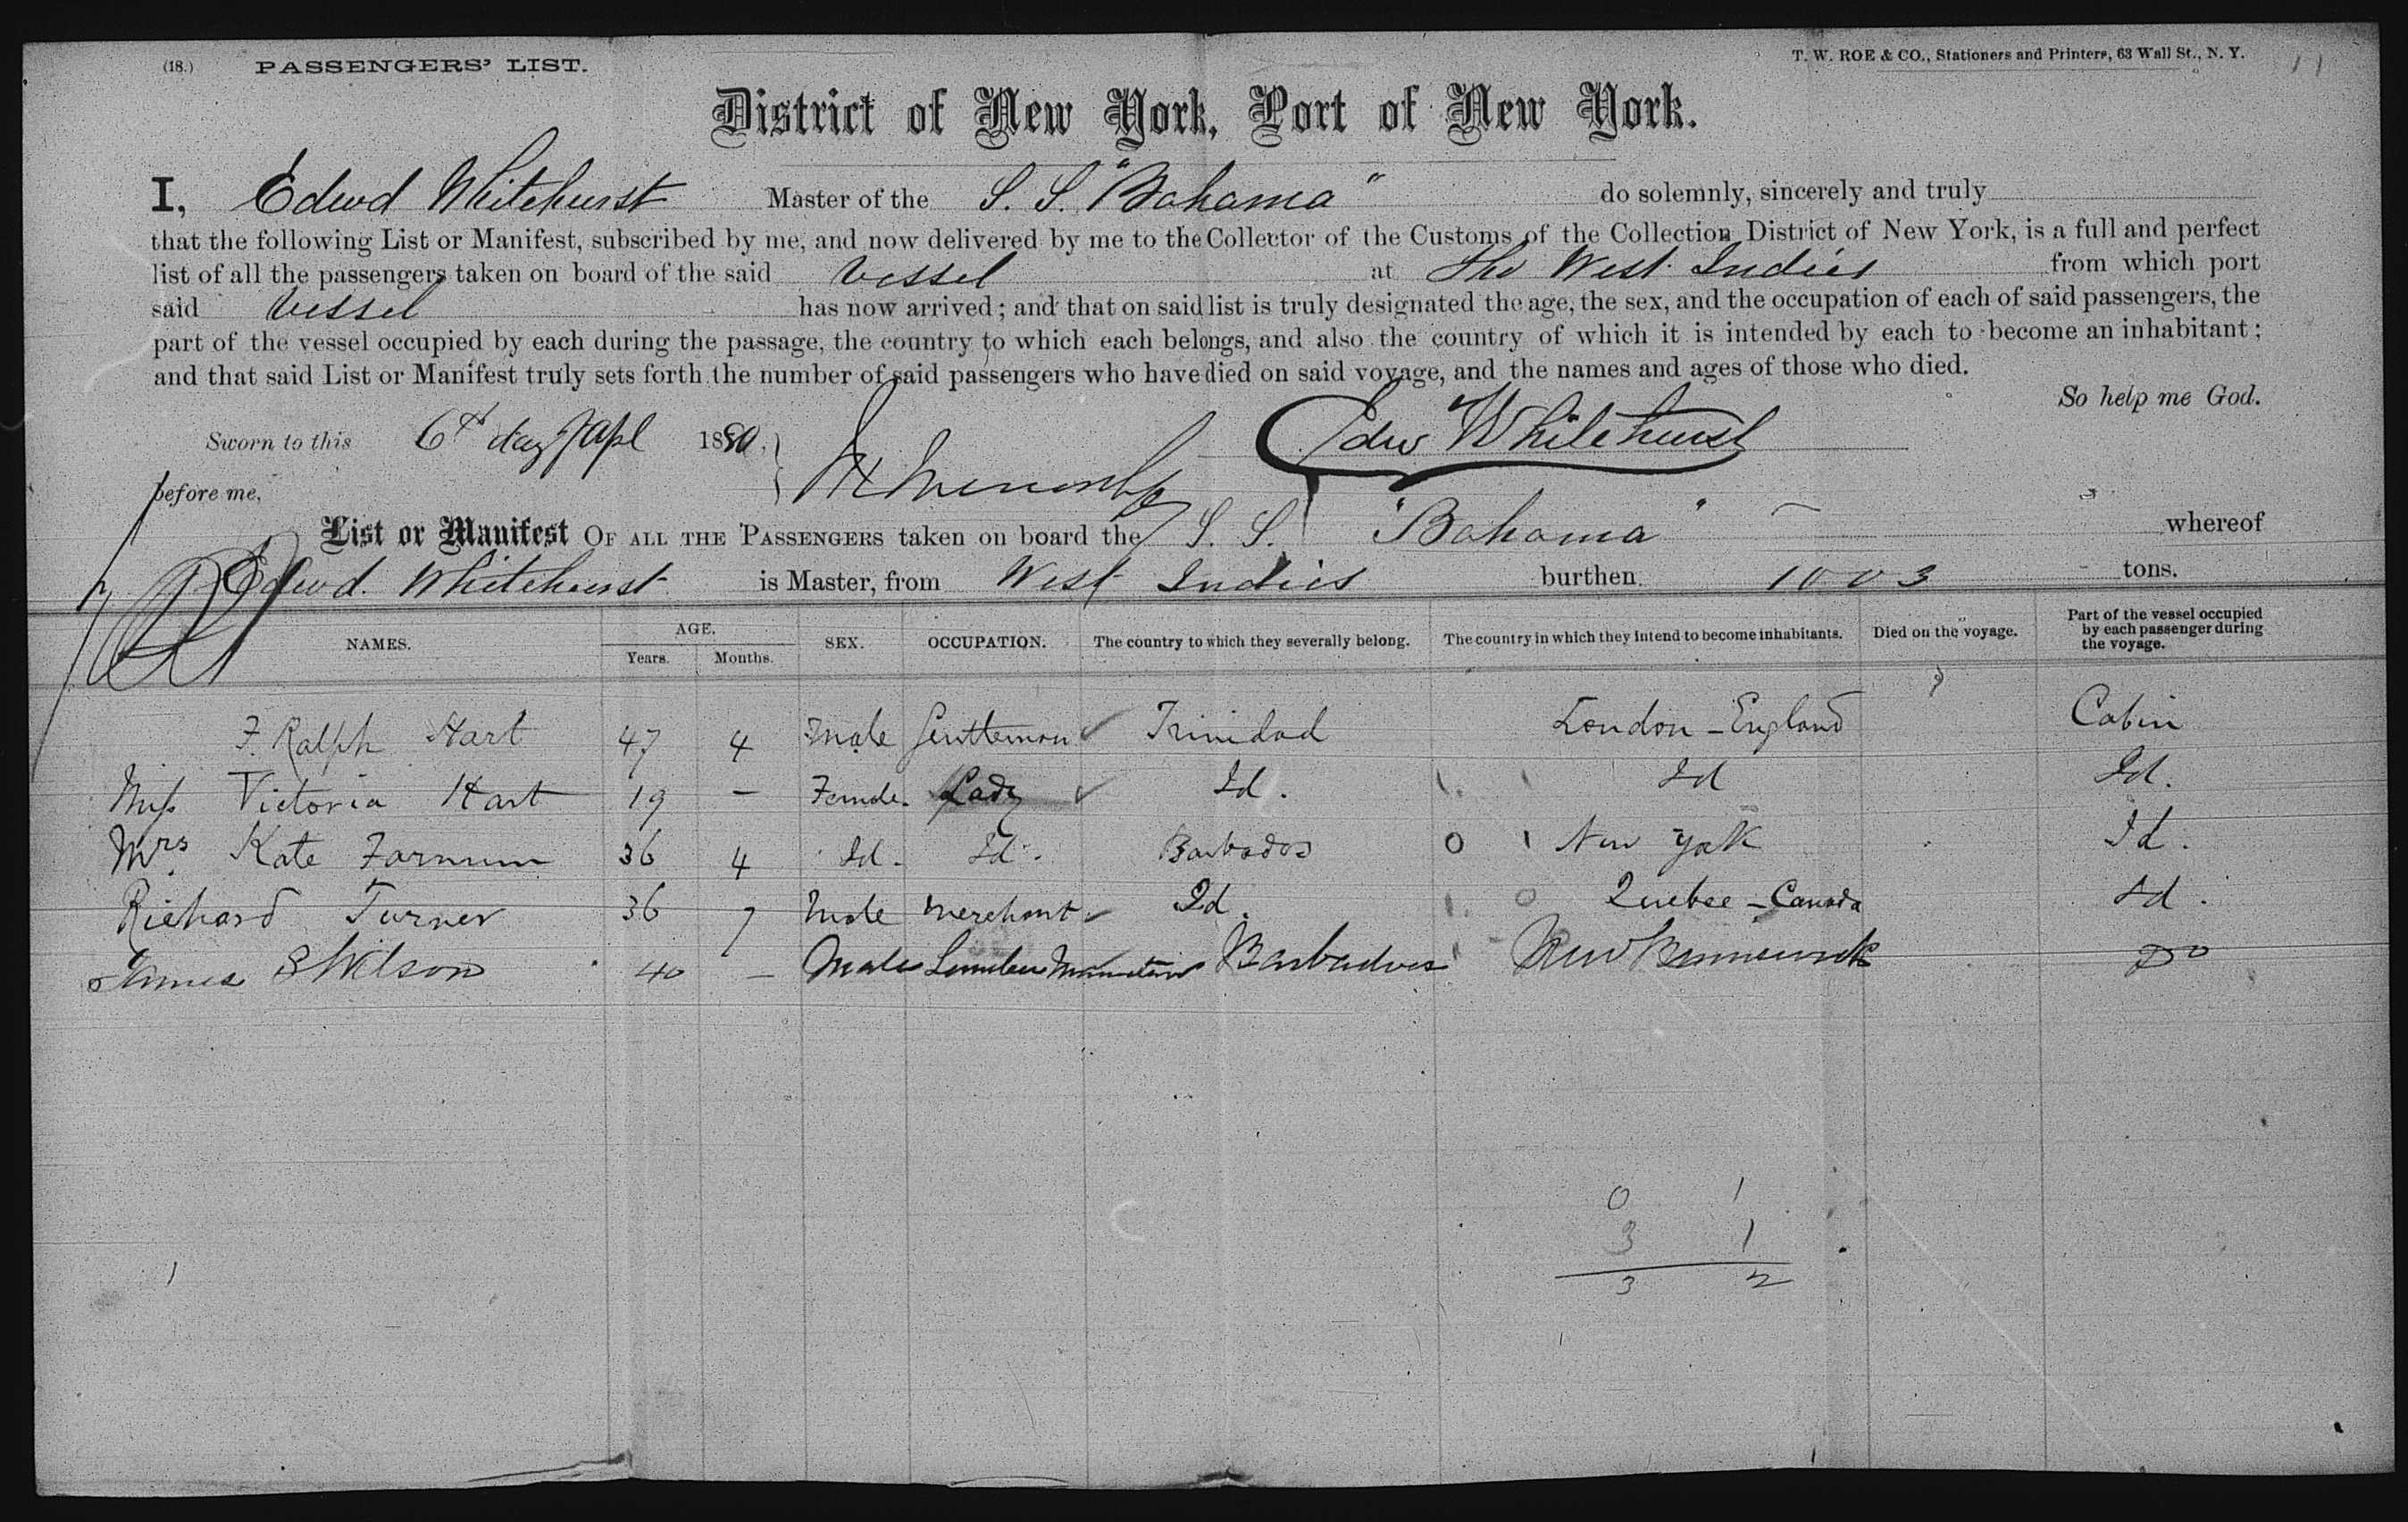 (18.) PASSENGERS' LIST. T. W. ROE & CO., Stationers and Printers, 63 Wall St., N. Y. 11
District of New York, Port of New York.
I, Edwd Whitehurst Master of the S. S. "Bahama" do solemnly, sincerely and truly
that the following List or Manifest, subscribed by me, and now delivered by me to the Collector of the Customs of the Collection District of New York, is a full and perfect
list of all the passengers taken on board of the said vessel at the West Indies from which port
said vessel has now arrived; and that on said list is truly designated the age, the sex, and the occupation of each of said passengers, the
part of the vessel occupied by each during the passage, the country to which each belongs, and also the country of which it is intended by each to become an inhabitant;
and that said List or Manifest truly sets forth the number of said passengers who have died on said voyage, and the names and ages of those who died.
So help me God.
Sworn to this 6th day Apl 1880. Edw Whitehurst
before me,
List or Manifest OF ALL THE PASSENGERS taken on board the S. S. "Bahama" whereof
Edwd. Whitehurst is Master, from West Indies burthen 1003 tons.
NAMES. AGE. Years. Months. SEX. OCCUPATION. The country to which they severally belong. The country in which they intend to become inhabitants. Died on the voyage. Part of the vessel occupied by each passenger during the voyage.
F. Ralph Hart 47 4 Male Gentleman Trinidad London - England Cabin
Miss Victoria Hart 19 — Female. Lady Id. Id Id.
Mrs Kate Farnum 36 4 Id. Id. Barbados 0 1 New York Id.
Richard Turner 36 7 Male Merchant Id. 1 0 Quebec - Canada Id.
James S Wilson 40 — Male Lumber Barbadoes New Brunswick Do
0 1
3 1
3 2